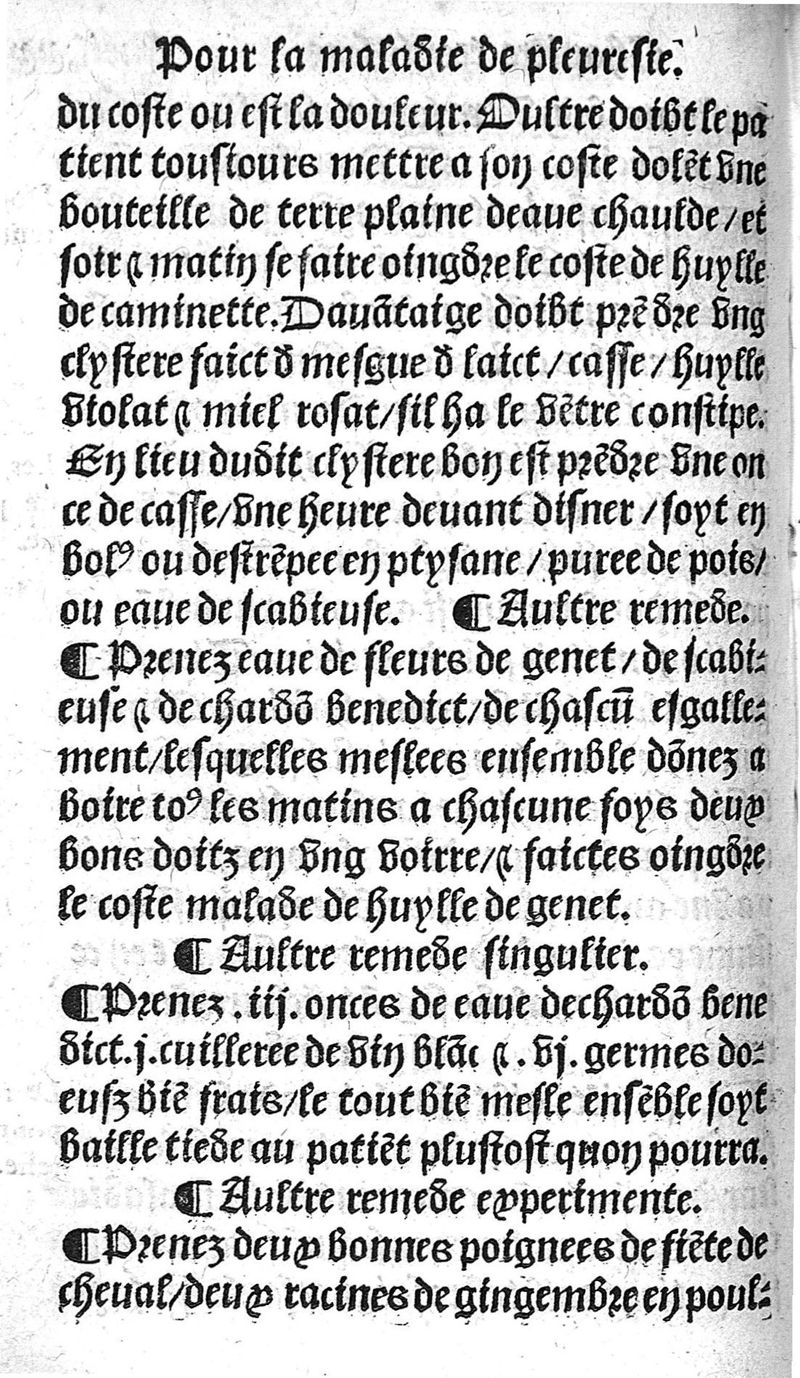 Pour la maladie de pleuresie.
du coste ou est la douleur. Oultre doibt le pa
tient tousiours mettre a son coste dolēt vne
bouteille de terre plaine deaue chaulde/et
soir ⁊ matin se faire oingdre le coste de huylle
de caminette. Davātaige doibt prēdre vng
clystere faict d̄ mesgue d̄ laict/casse/huylle
violat ⁊ miel rosat/sil ha le vētre constipe.
En lieu dudit clystere bon est prēdre vne on
ce de casse/vne heure devant disner/soyt en
bolꝰ ou destrēpee en ptysane/puree de pois/
ou eaue de scabieuse. ¶ Aultre remede.
¶ Prenez eaue de fleurs de genet/de scabi⸗
euse ⁊ de chardō benedict/de chascū esgalle⸗
ment/lesquelles meslees ensemble dōnez a
boire toꝰ les matins a chascune foys deux
bons doitz en vng voirre/⁊ faictes oingdre
le coste malade de huylle de genet.
¶ Aultre remede singulier.
¶ Prenez .iij. onces de eaue dechardō bene
dict.j.cuilleree de vin blāc ⁊ .vj. germes do⸗
eufz biē frais/le tout biē mesle ensēble soyt
baille tiede au patiēt plustost quon pourra.
¶ Aultre remede experimente.
¶ Prenez deux bonnes poignees de fiēte de
cheval/deux racines de gingembre en poul⸗